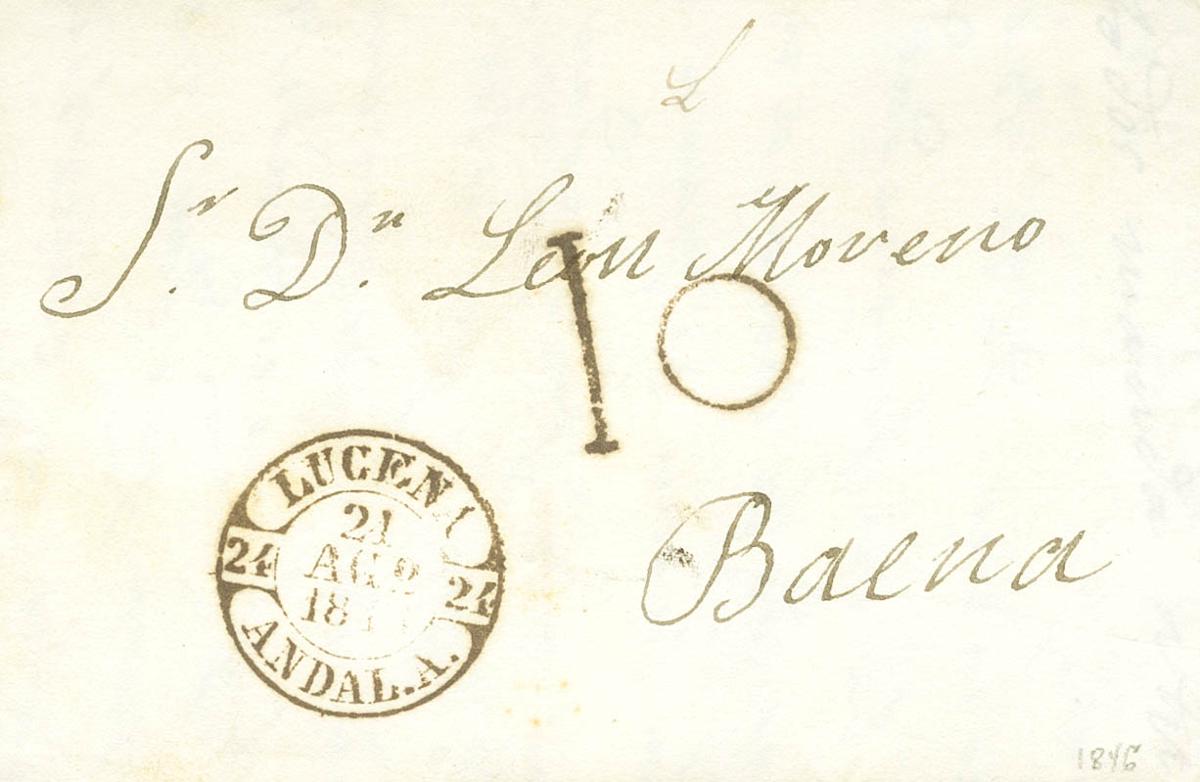 L
Sr. Dn. León Moreno
10
LUCENA
21
AGO
24 24
ANDAL.A.
Baena
1846